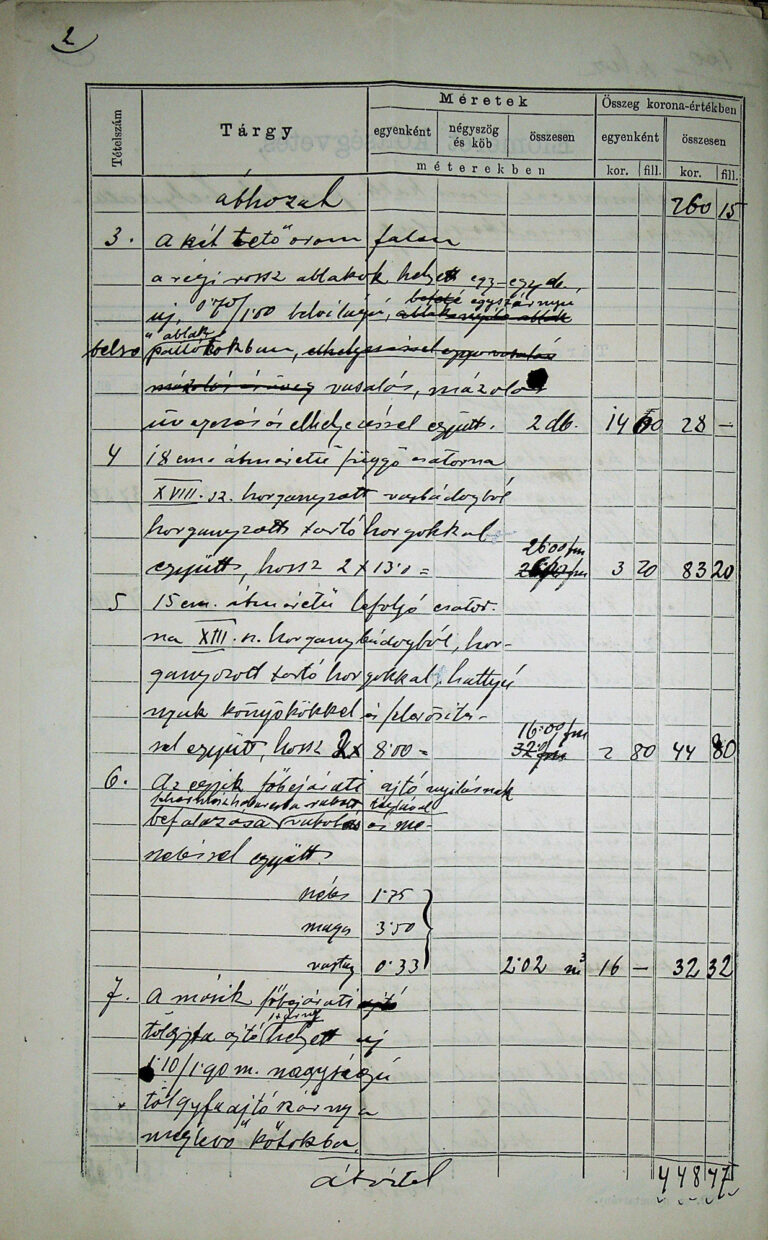 2
Tételszám
Tárgy
Méretek
Összeg korona-értékben
egyenként
négyszög és köb
összesen
egyenként
összesen
méterekben
kor. fill. kor. fill.
áthozat 260 15
3. A két tető orom falon
a régi rossz ablakok helyett egy-egy db.
egyszárnyú
új, 0·70/1·00 belvilágú,
ablak
belső tokokban,
vasalás, mázolás
üvegezés és elhelyezéssel együtt. 2 db. 14 28 —
4 18 cm. átméretű függő csatorna
XVIII. sz. horganyzott vasbádogból
horganyzott tartó horgokkal
26·00 fm
együtt, hossz 2 x 13·0 = 3 20 83 20
5 15 cm. átméretű lefolyó csator-
na XIII. sz. horganybádogból, hor-
ganyozott tartó horgokkal, hattyú
nyak könyökökkel és felerősítés-
16·00 fm
sel együtt, hossz 2 x 8·00 = 32·0 fm 2 80 44 80
6. Az egyik főbejárati ajtó nyilásnak
befalazása vakolás és me-
szeléssel együtt.
széles 1·75
magas 3·50
vastag 0·33 2·02 m³ 16 — 32 32
7. A másik főbejárati ajtó
tölgyfa ajtó helyett új
1·10/1·90 m. nagyságú
tölgyfa ajtó szárnya
meglévő kőtokba.
átvitel 448 47